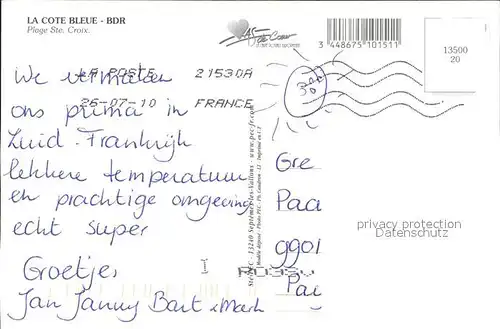 LA COTE BLEUE - BDR
Plage Ste. Croix.
3 448675 101511
13500
20
LA POSTE 21530A
26-07-10 FRANCE
We vermaken
ons prima in
Zuid-Frankrijk
lekkere temperatuur
en prachtige omgeving
echt super
Groetjes
Jan Janny Bart + Mark
www.pec-fr.com
13240 Septèmes-les-Vallons
Gre
Paa
9901
Pai
privacy protection
Datenschutz